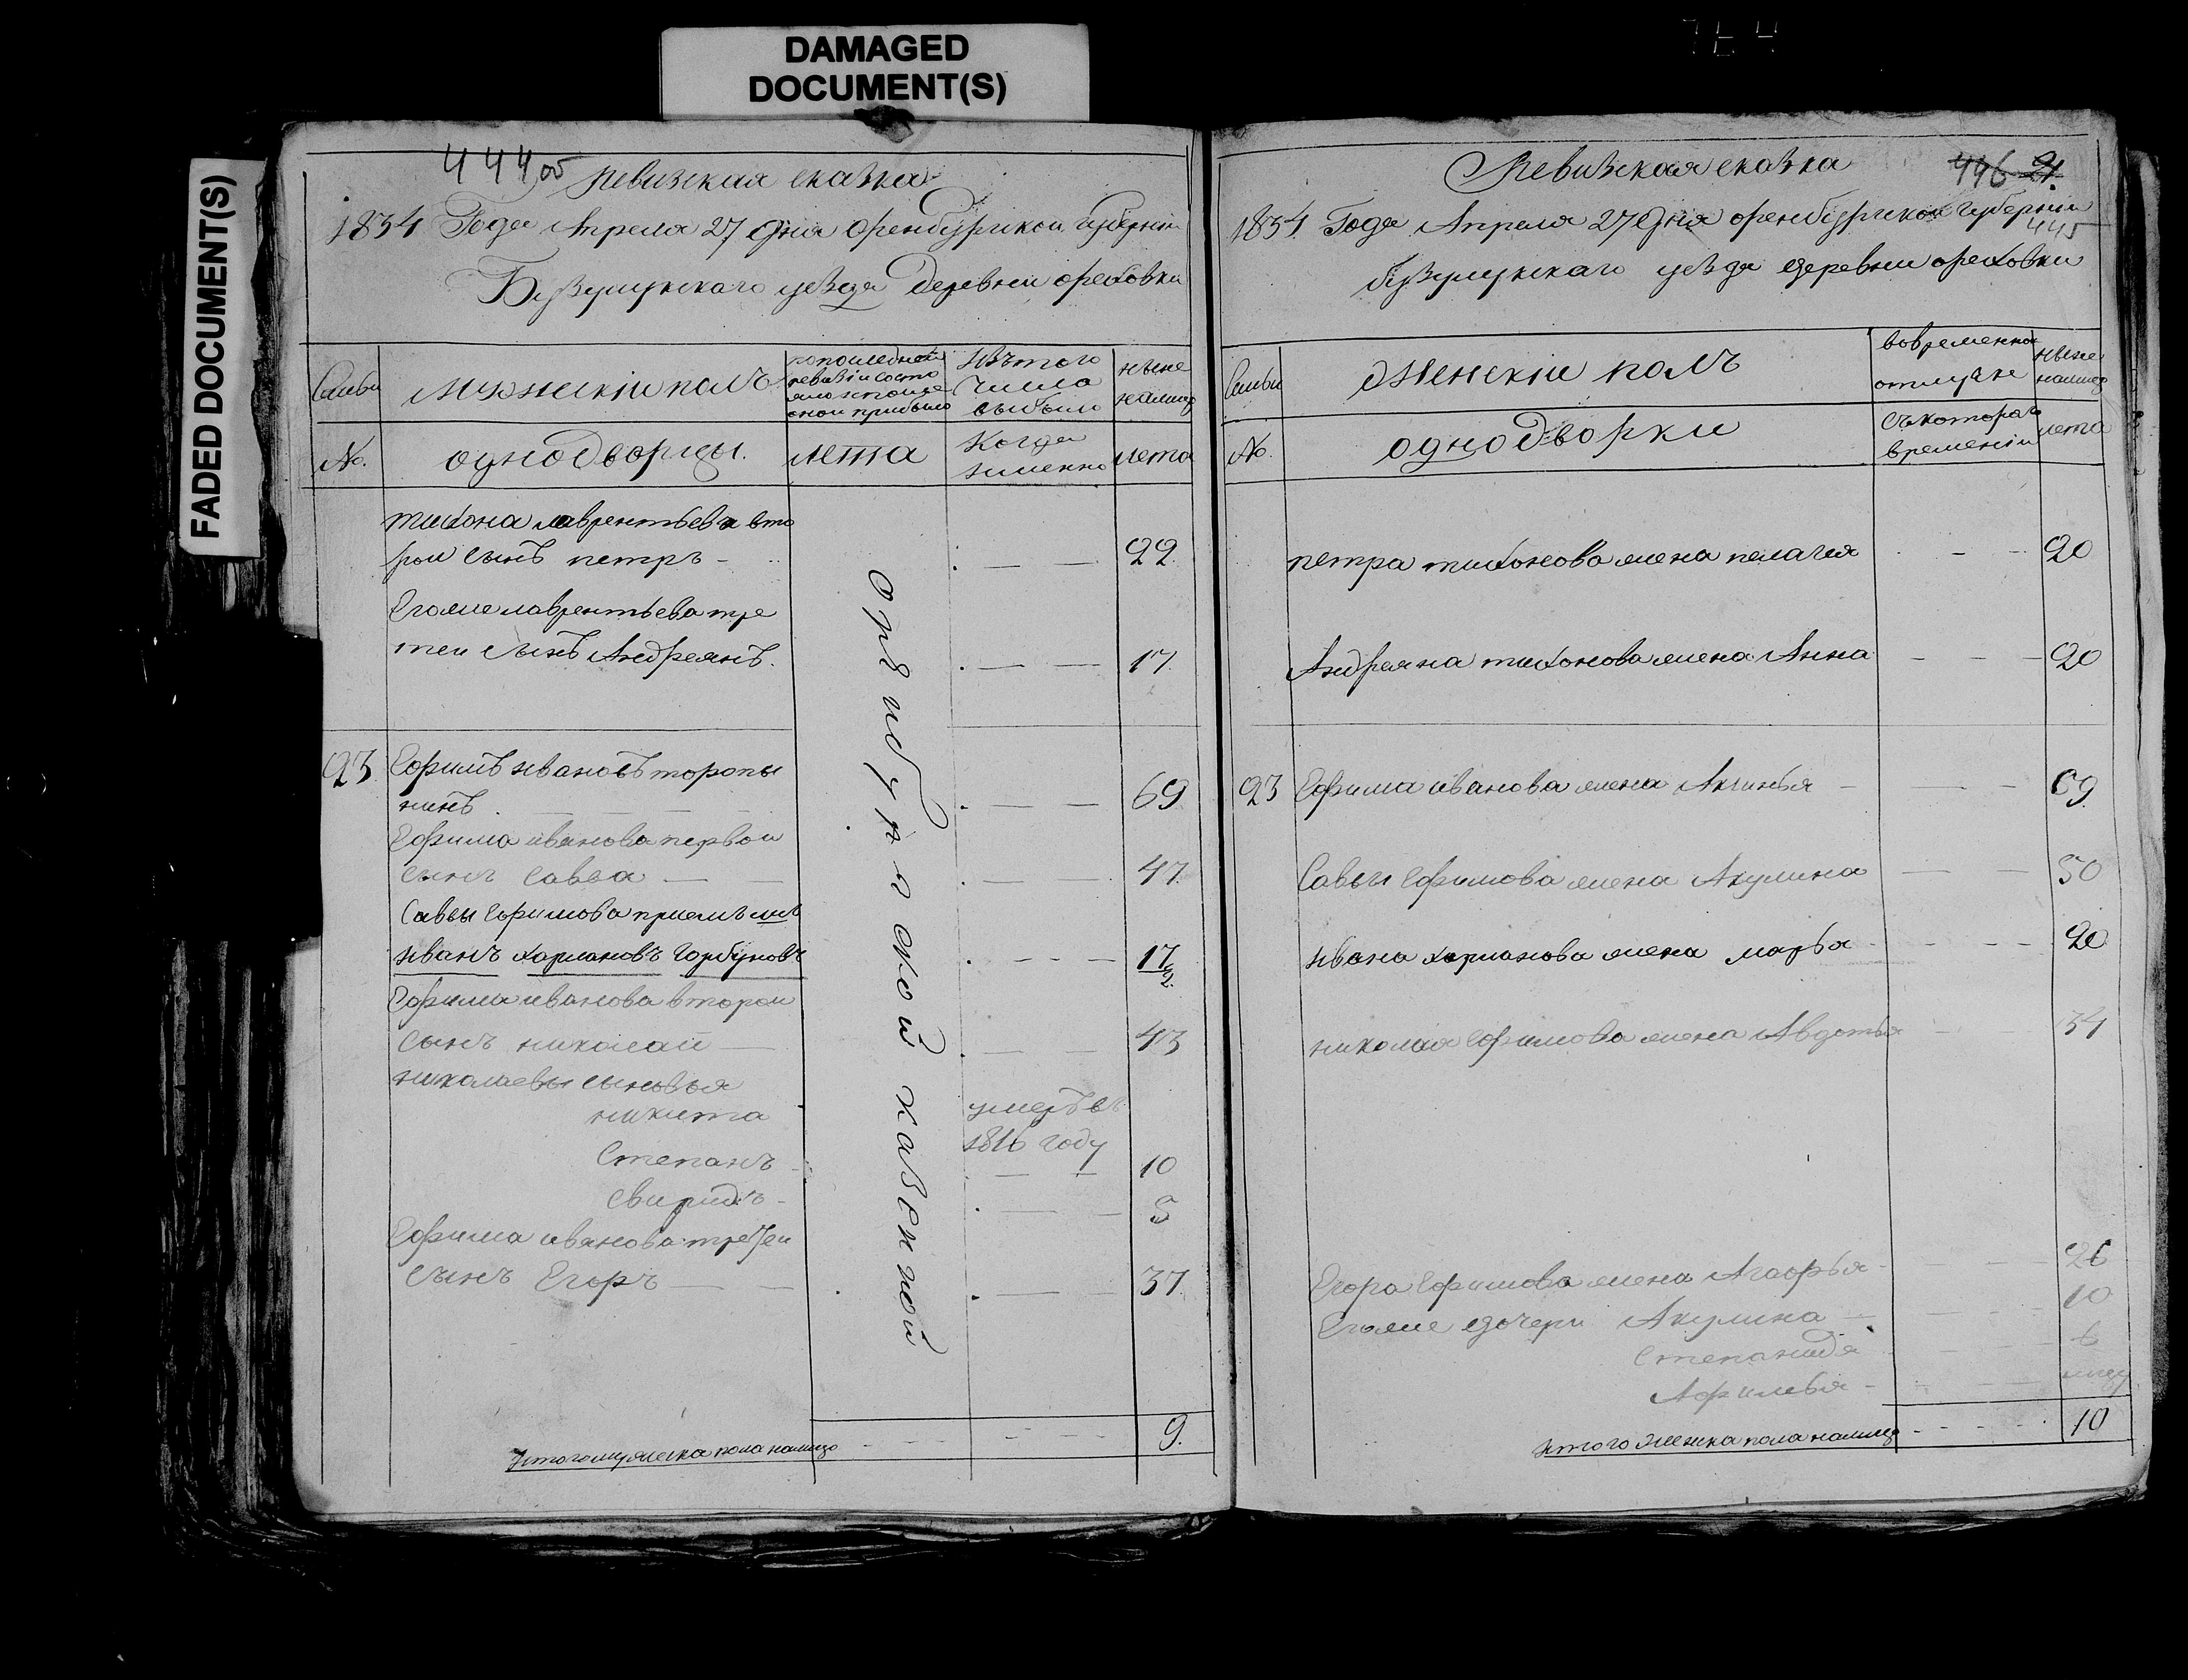 DAMAGED
DOCUMENT(S)
FADED DOCUMENT(S)
444 об
Ревизская сказка
1834 Года Апреля 27 Дня Оренбургской губернии
Бузулукскаго уезда Деревни ореховки
Семьи
мужескiй полъ
по последней
ревизiи состо
яло и после
оной прибыло
изъ того
числа
выбыло
ныне
налицо
№.
однодворцы.
лета
Когда
именно
лета
тихона лаврентьева вто
рой сынъ петръ - 22
Егоже лаврентьева тре
тей сынъ Андреянъ. 17.
23 Ефимъ ивановъ торопы
нинъ 69
Ефима иванова первой
сынъ Савва 47.
Саввы Ефимова приемышъ
иванъ харлановъ Горбуновъ 17 1/2
Ефима иванова второй
сынъ николай 43
николаевы сыновья
никита умеръ въ
1816 году
Степанъ 10
Свиридъ - 5
Ефима иванова третей
сынъ Егоръ 37.
Оренбургской казенной
Итого мужеска пола налицо 9.
Ревизская сказка
446 21.
445
1834. Года Апреля 27 Дня оренбургской губернии
бузулукскаго уезда деревни ореховки
Семьи
Женскiй полъ
во временной
отлучке
ныне
налицо
№.
однодворки
съ котораго
времени
лета
петра тихонова жена пелагея 20
Андреяна тихонова жена Анна 20
23 Ефима иванова жена Аксинья 69
Савы Ефимова жена Акулина 50
ивана харланова жена марья 20
николая Ефимова жена Авдотья 34
Егора Ефимова жена Агафья 26
Егоже дочери Акулина 10
Степанида 6
Афимья -
итого Женска пола налицо 10